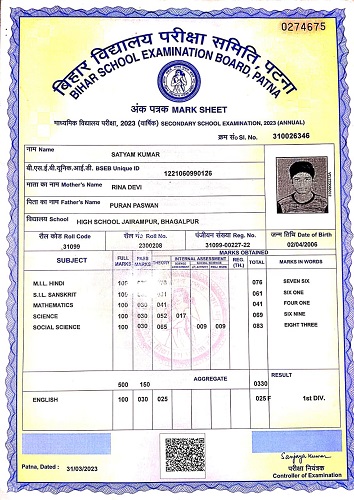 0274675
बिहार विद्यालय परीक्षा समिति, पटना
BIHAR SCHOOL EXAMINATION BOARD, PATNA
अंक पत्रक MARK SHEET
माध्यमिक विद्यालय परीक्षा, 2023 (वार्षिक) SECONDARY SCHOOL EXAMINATION, 2023 (ANNUAL)
क्रम सं० Sl. No. 310026346
नाम Name
SATYAM KUMAR
बी.एस.ई.बी.यूनिक.आई.डी. BSEB Unique ID
1221060990126
माता का नाम Mother's Name
RINA DEVI
पिता का नाम Father's Name
PURAN PASWAN
विद्यालय School
HIGH SCHOOL JAIRAMPUR, BHAGALPUR
रौल कोड Roll Code रौल नं० Roll No. पंजीयन संख्या Reg. No. जन्म तिथि Date of Birth
31099 2300208 31099-00227-22 02/04/2006
MARKS OBTAINED
SUBJECT FULL MARKS PASS MARKS THEORY INTERNAL ASSESSMENT REG. (TH.) TOTAL MARKS IN WORDS
M.I.L. HINDI 076 SEVEN SIX
S.I.L. SANSKRIT 061 SIX ONE
MATHEMATICS 100 030 041 041 FOUR ONE
SCIENCE 100 030 052 017 069 SIX NINE
SOCIAL SCIENCE 100 030 065 009 009 083 EIGHT THREE
500 150 AGGREGATE 0330 RESULT
ENGLISH 100 030 025 025 F 1st DIV.
Patna, Dated : 31/03/2023
Sanjay Kumar
परीक्षा नियंत्रक
Controller of Examination